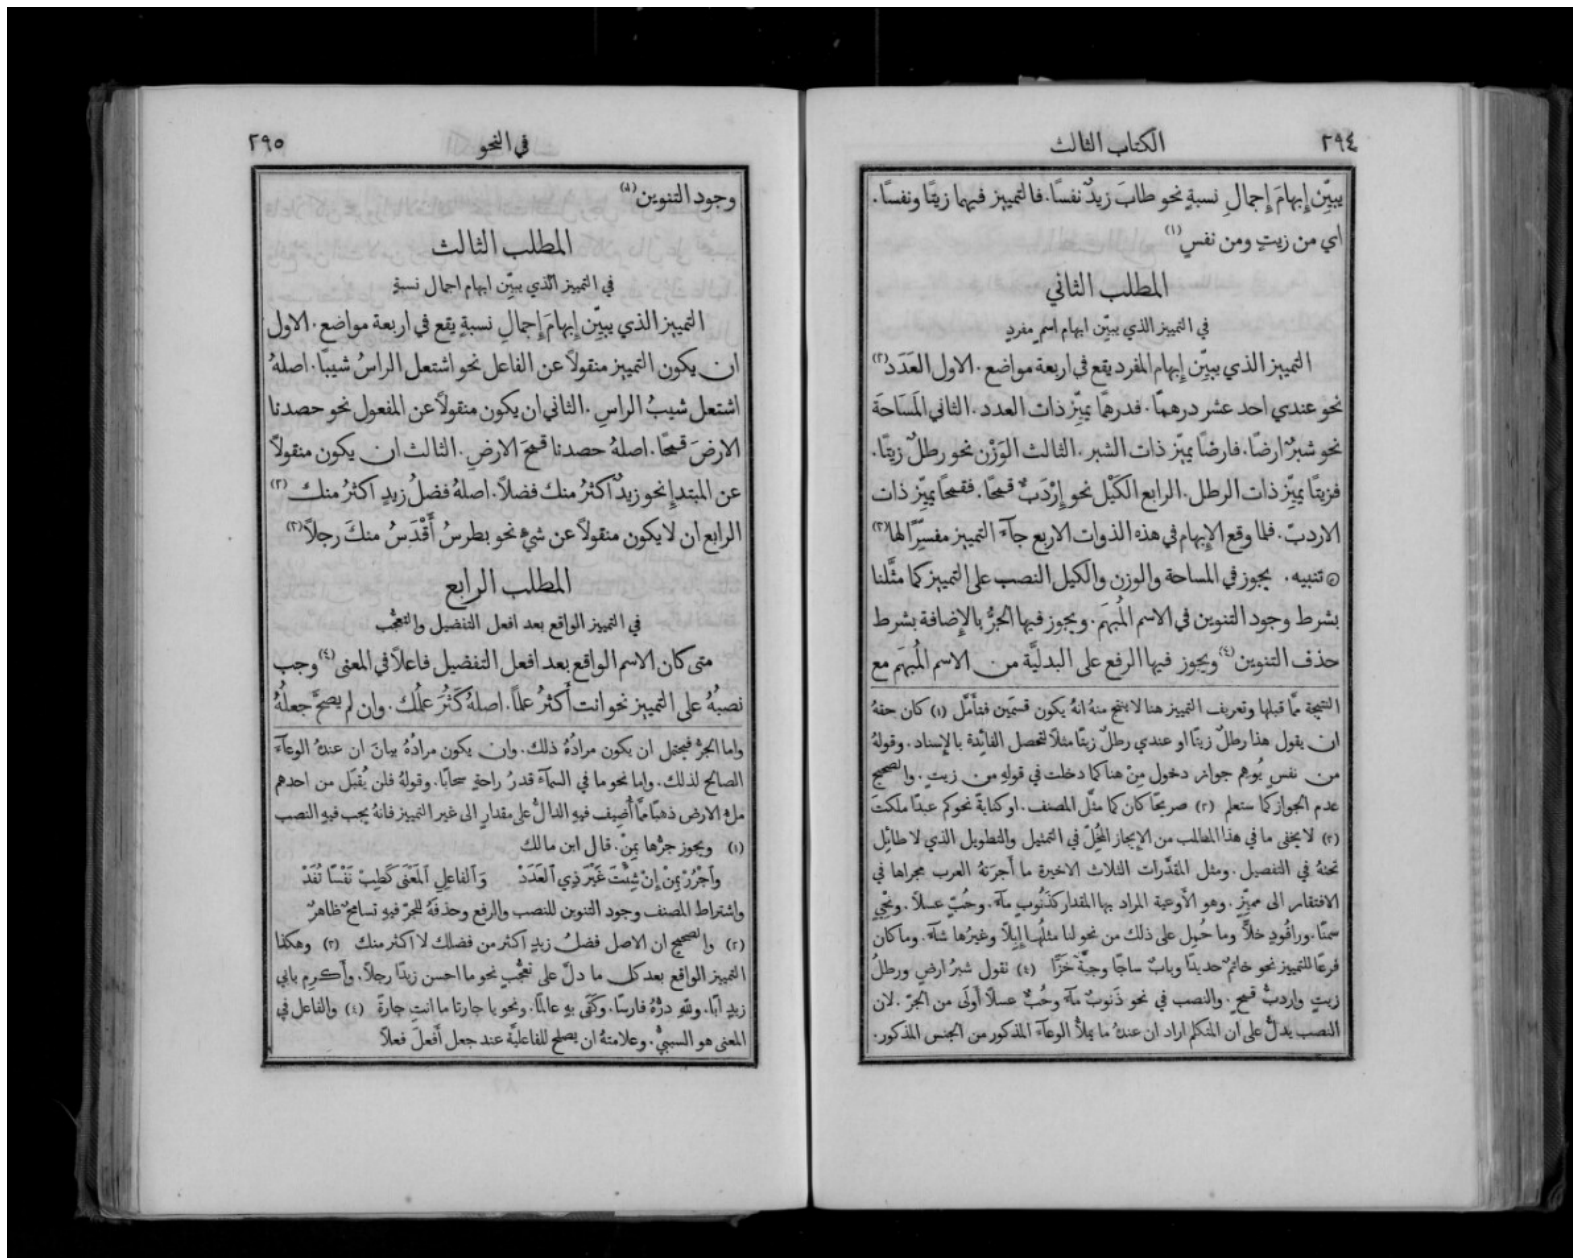 ٢٩٤
الكتاب الثالث
يبيّن إبهامَ إجمالِ نسبةٍ نحو طابَ زيدٌ نفسًا. فالتمييز فيهما زيتًا ونفسًا.
اي من زيتٍ ومن نفسٍ (١)
المطلب الثاني
في التمييز الذي يبيّن ابهام اسمٍ مفردٍ
التمييز الذي يبيّن إبهام المفرد يقع في اربعة مواضع. الاول العَدَد (٢)
نحو عندي احد عشر درهمًا. فدرهمًا يميّز ذات العدد. الثاني المَسَاحَة
نحو شبرٌ ارضًا. فارضًا يميّز ذات الشبر. الثالث الوَزْن نحو رطلٌ زيتًا.
فزيتًا يميّز ذات الرطل. الرابع الكَيْل نحو إِرْدَبٌّ قمحًا. فقمحًا يميّز ذات
الاردبّ. فلما وقع الإبهام في هذه الذوات الاربع جآء التمييز مفسّرًا لها (٣)
تنبيه. يجوز في المساحة والوزن والكيل النصب على التمييز كما مثَّلنا
بشرط وجود التنوين في الاسم المُبهَم. ويجوز فيها الجرُّ بالإضافة بشرط
حذف التنوين (٤) ويجوز فيها الرفع على البدليَّة من الاسم المُبهَم مع
النتيجة ممّا قبلها وتعريف التمييز هنا لا ينتج منهُ انهُ يكون قسمَين فتأمَّل (١) كان حقهُ
ان يقول هذا رطلٌ زيتًا او عندي رطلٌ زيتًا مثلًا لتحصل الفائدة بالإسناد. وقولهُ
من نفسٍ يُوهم جواز دخول مِنْ هنا كما دخلت في قولهِ من زيتٍ. والصحيح
عدم الجواز كما ستعلم (٢) صريحًا كان كما مثَّل المصنف. او كنايةً نحو كم عبدًا ملكتَ
(٣) لا يخفى ما في هذا المطلب من الإيجاز المُخِلّ في التمثيل والتطويل الذي لا طائِل
تحتهُ في التفصيل. ومثل المقدَّرات الثلاث الاخيرة ما أجرَتهُ العرب مجراها في
الافتقار الى مميّزٍ. وهو الأوعية المراد بها المقدار كذَنُوبٍ مآءً. وحُبٍّ عسلًا. ونِحْيٍ
سمنًا. وراقُودٍ خلًّا وما حمل على ذلك من نحو لنا مثلُها إبلًا وغيرُها شآءً. وما كان
فرعًا للتمييز نحو خاتمٌ حديدًا وبابٌ ساجًا وجبَّةٌ خَزًّا (٤) تقول شبرُ ارضٍ ورطلُ
زيتٍ واردبُّ قمحٍ. والنصب في نحو ذَنوبٌ مآءً وحُبٌّ عسلًا أَولَى من الجرّ. لان
النصب يدلُّ على ان المتكلم اراد ان عندهُ ما يملأُ الوعآءَ المذكور من الجنس المذكور.
في النحو
٢٩٥
وجود التنوين (٥)
المطلب الثالث
في التمييز الذي يبيّن ابهام اجمال نسبةٍ
التمييز الذي يبيّن إبهامَ إجمالِ نسبةٍ يقع في اربعة مواضع. الاول
ان يكون التمييز منقولًا عن الفاعل نحو اشتعل الراسُ شيبًا. اصلهُ
اشتعل شيبُ الراسِ. الثاني ان يكون منقولًا عن المفعول نحو حصدنا
الارضَ قمحًا. اصلهُ حصدنا قمحَ الارضِ. الثالث ان يكون منقولًا
عن المبتدإِ نحو زيدٌ اكثرُ منك فضلًا. اصلهُ فضلُ زيدٍ اكثرُ منك (٢)
الرابع ان لا يكون منقولًا عن شيءٍ نحو بطرسُ أَقْدَسُ منكَ رجلًا (٣)
المطلب الرابع
في التمييز الواقع بعد افعل التفضيل والتعجّب
متى كان الاسم الواقع بعد افعل التفضيل فاعلًا في المعنى (٤) وجب
نصبُهُ على التمييز نحو انت أَكثرُ علمًا. اصلهُ كَثُرَ علمُك. وان لم يصحَّ جعلُهُ
واما الجرّ فيحتمل ان يكون مرادُهُ ذلك. وان يكون مرادُهُ بيانَ ان عندهُ الوعآءَ
الصالح لذلك. واما نحو ما في السمآء قدرُ راحةٍ سحابًا. وقولهُ فلن يُقبَل من احدهم
ملءُ الارض ذهبًا ممّا أُضيف فيهِ الدالُّ على مقدارٍ الى غير التمييز فانهُ يجب فيهِ النصب
(١) ويجوز جرُّها بِمِنْ. قال ابن مالك
وَٱجْرُرْ بِمِنْ إِنْ شِئْتَ غَيْرَ ذِي ٱلْعَدَدْ وَٱلفاعِلِ ٱلْمَعْنَى كَطِبْ نَفْسًا تُفَدْ
واشتراط المصنف وجود التنوين للنصب والرفع وحذفَهُ للجرّ فيهِ تسامحٌ ظاهرٌ
(٢) والصحيح ان الاصل فضلُ زيدٍ اكثر من فضلك لا اكثر منك (٣) وهكذا
التمييز الواقع بعد كل ما دلَّ على تعجُّبٍ نحو ما احسن زيدًا رجلًا. وأَكرِم بابي
زيدٍ ابًا. وللهِ درُّهُ فارسًا. وكَفَى بهِ عالمًا. ونحو يا جارتا ما انتِ جارةً (٤) والفاعل في
المعنى هو السببيُّ. وعلامتهُ ان يصلح للفاعليَّة عند جعل أَفعلَ فعلًا